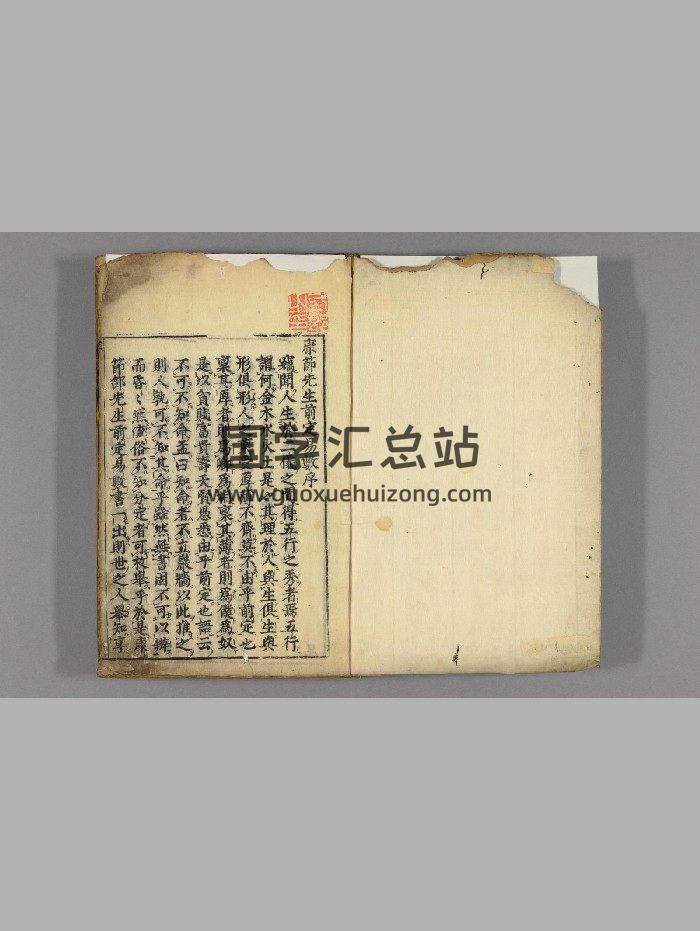 康節先生前定易數序
竊聞人生於 之間得五行之秀者焉五行
謂何金木水火土是 其理於人與生俱生與
形俱形人之 厚 不齊莫不由乎前定也
稟其厚者則為 為 稟其薄者則為僕為奴
是以貧賤富貴壽夭賢愚悉由乎前定也語云
不可不知命孟曰知命者不立巖牆以此推之
則人孰可不知其命乎雖然無書固不可以辨
而昏〻然 俗不知分定者可枚舉乎於是康
節邵先生前定易數書一出則世之人舉知享
国学汇总站
www.guoxuehuizong.com